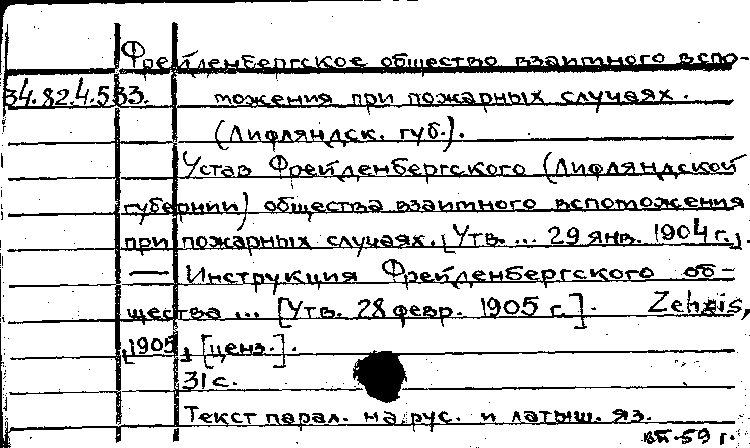 Фрейденбергское общество взаимного вспо-
34.82.4.533. можения при пожарных случаях.
(Лифляндск. губ.).
Устав Фрейденбергского (Лифляндской
губернии) общества взаимного вспоможения
при пожарных случаях. [Утв. ... 29 янв. 1904 г.].
— Инструкция Фрейденбергского об-
щества ... [Утв. 28 февр. 1905 г.]. Zehsis,
[1905], [ценз.].
31 с.
Текст парал. на рус. и латыш. яз.
ВП-59 г.